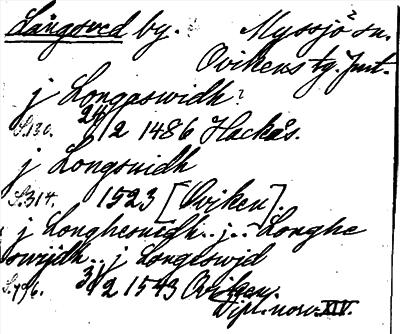 Långsved by. Myssjö sn.
Ovikens tg. Jmt.
j Longaswidh?
S.130. 24/2 1486 Hackås.
j Longsuidh
S.314. 1523 [Oviken].
j Longhesuidh.. j.. Longhe
swijdh.. j Longeswid
3/2 1543 Oviken.
Dipl. norv. XIV.